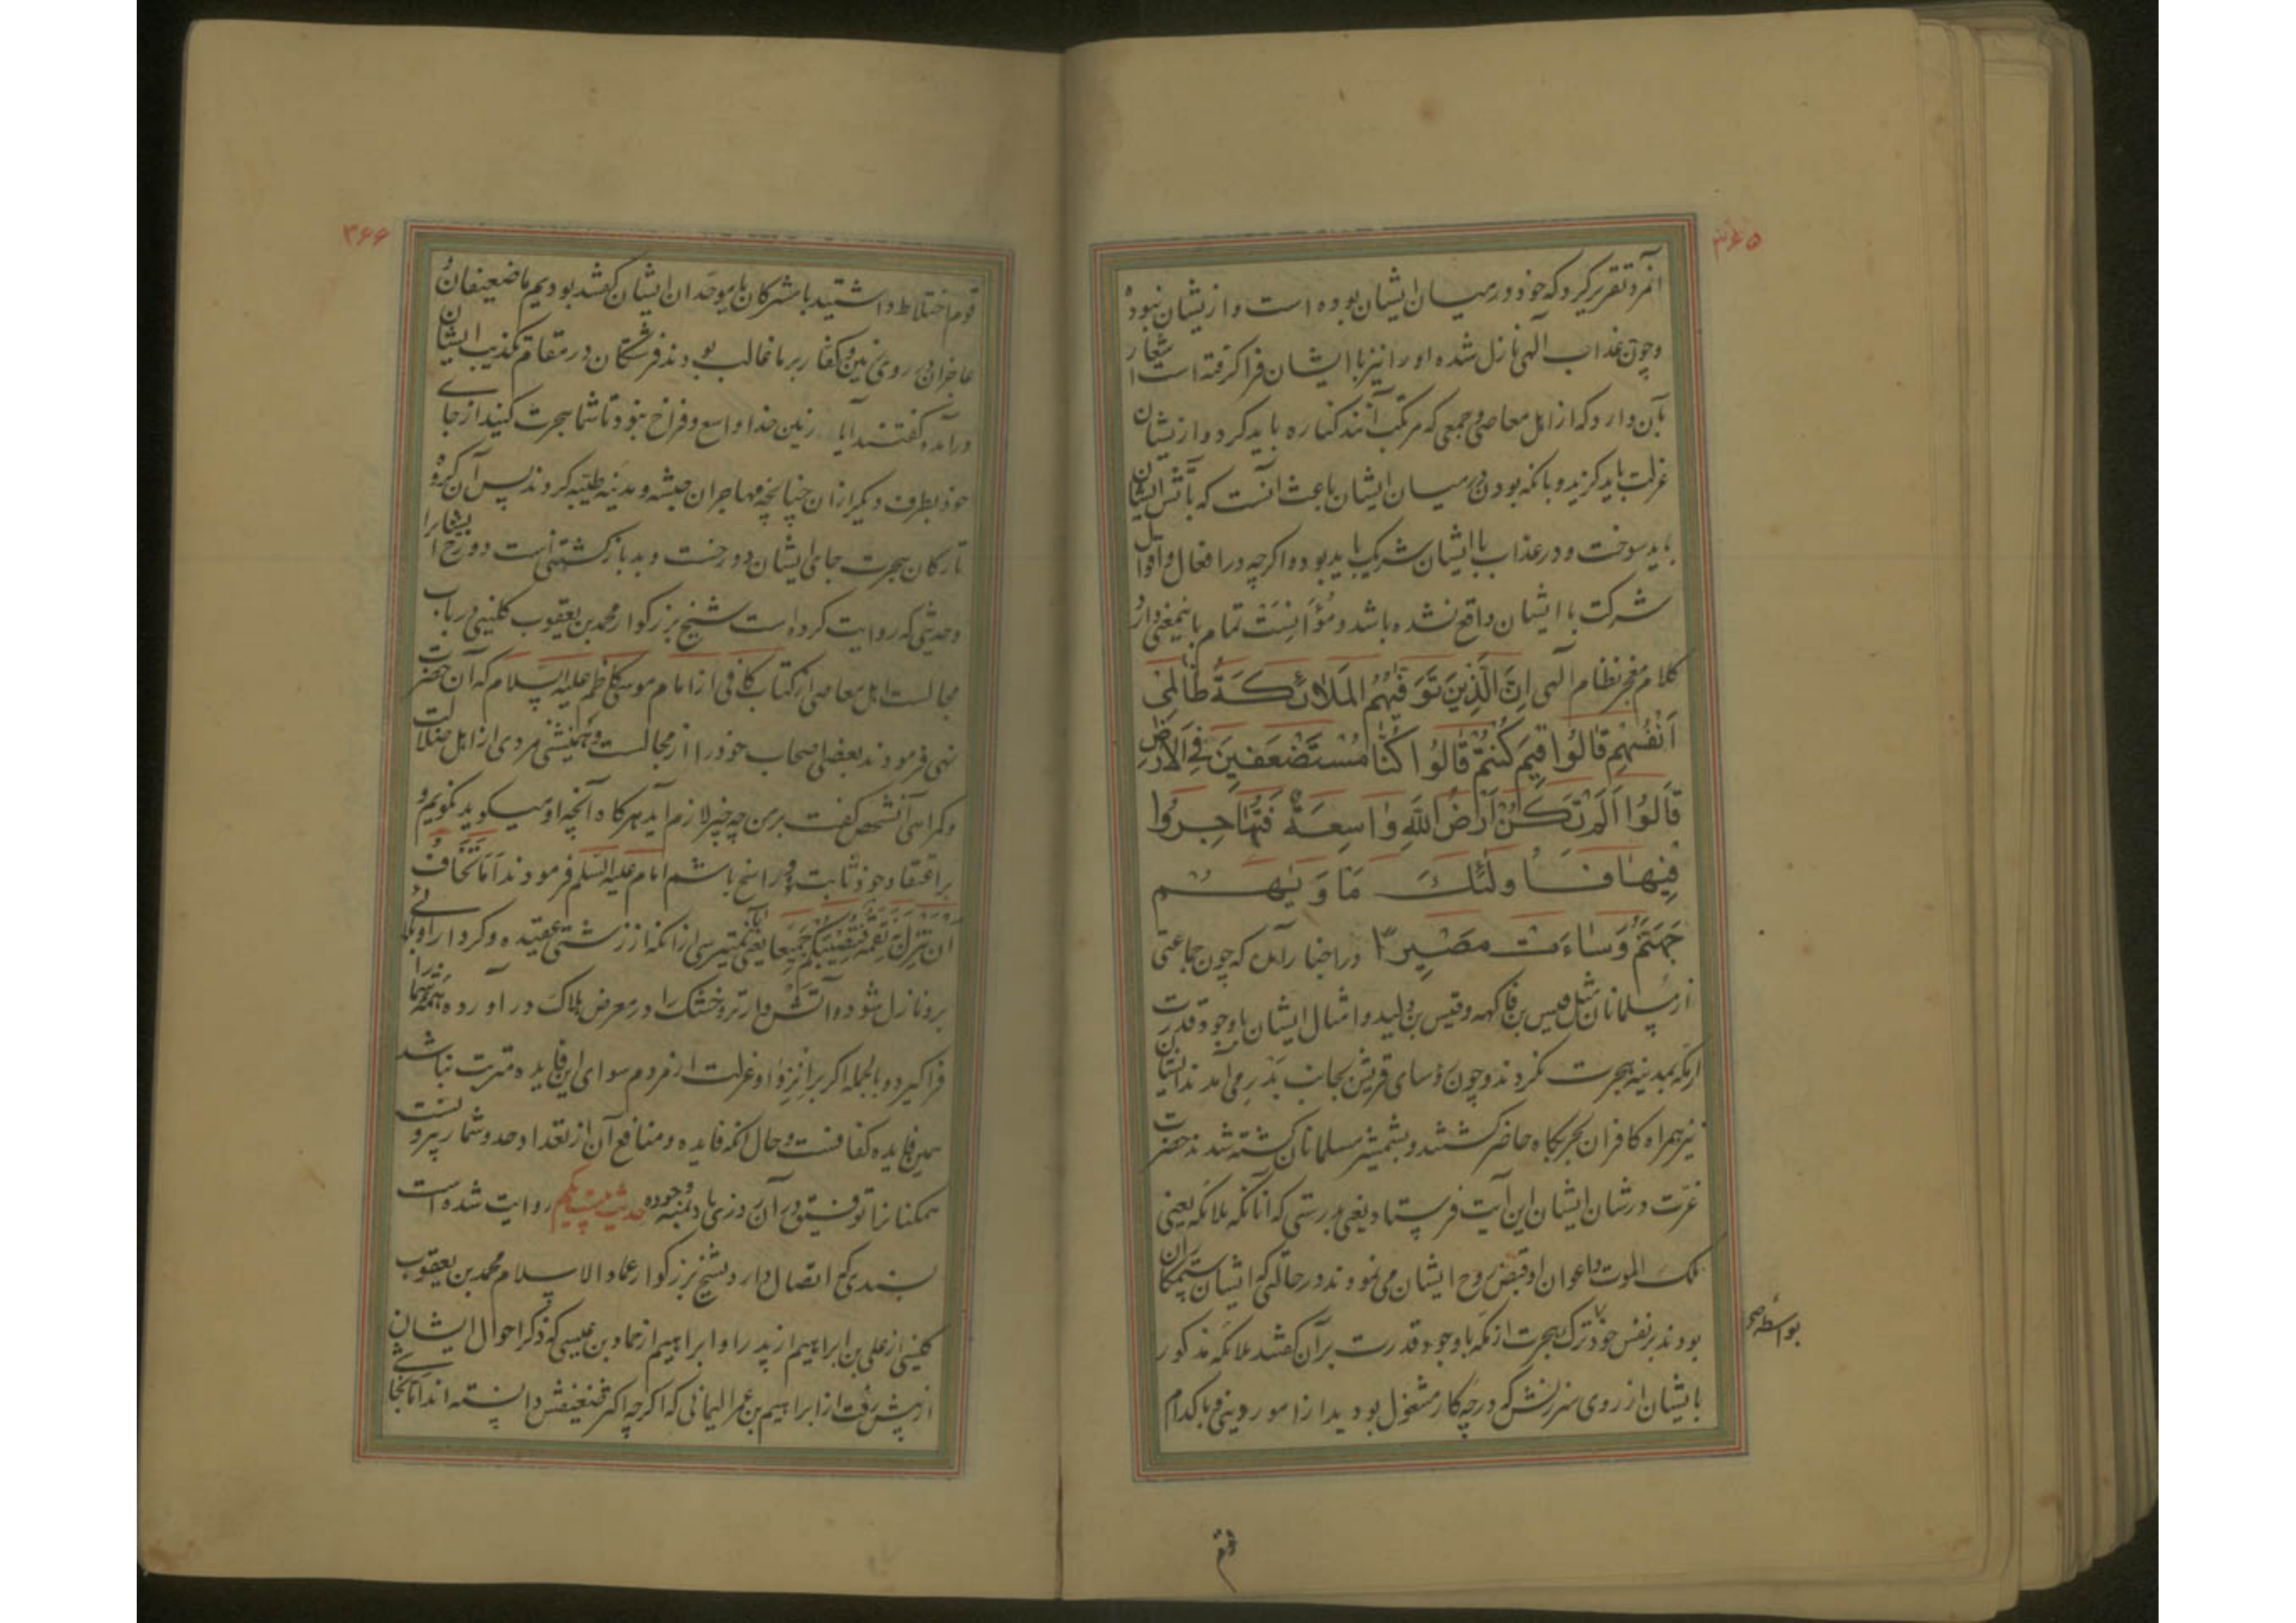 ۳۶۵
آنمرد تقریر کرد که خود در میان ایشان بوده است و ازیشان نبوده
و چون عذاب الهی نازل شده او را نیز با ایشان فرا گرفته است اشعار
بآن دارد که از اهل معاصی و جمعی که مرتکب آنند کناره باید کرد و ازیشان
عزلت باید گزید و بآنکه بودن در میان ایشان باعث آنست که بآتش ایشان
باید سوخت و در عذاب با ایشان شریک باید بود و اگرچه در افعال و اقوال
شرکت با ایشان واقع نشده باشد و مؤانست تمام باینمعنی دارد
کلام معجز نظام آلهی اِنَّ الَّذِینَ تَوَفّٰیهُمُ المَلاۤئِکَةُ ظَالِمِیۤ
اَنْفُسِهِمْ قَالُوا فِیمَ کُنتُمْ قَالُوا کُنَّا مُسْتَضْعَفِینَ فِی الْاَرْضِ
قَالُوا اَلَمْ تَکُنْ اَرْضُ اللّٰهِ وَاسِعَةً فَتُهَاجِرُوا
فِیهَا فَاُولٰئِکَ مَاْوٰیهُمْ
جَهَنَّمُ وَسَاءَتْ مَصِیرًا در اخبار آمده که چون جماعتی
از مسلمانان مثل قیس بن فاکهه و قیس بن ولید و امثال ایشان با وجود قدرت
از مکه بمدینه هجرت نکردند و چون رؤسای قریش بجانب بدر می آمدند ایشان
نیز همراه کافران بحربگاه حاضر گشتند و بشمشیر مسلمانان کشته شدند حضرت
عزت در شان ایشان این آیت فرستاد یعنی بدرستی که آنانکه ملائکه یعنی
ملک الموت و اعوان او قبض روح ایشان می نمودند در حالتی که ایشان ستمکاران
بودند بر نفس خود ترک هجرت از مکه با وجود قدرت بر آن گفتند ملائکه مذکور
بواسطه صح
بایشان از روی سرزنش که در چه کار مشغول بودید از امور دینی و با کدام
قوم
۳۶۶
قوم اختلاط داشتید با مشرکان یا موحدان ایشان گفتند بودیم ما ضعیفان و
عاجزان در روی زمین و کفار بر ما غالب بودند فرشتگان در مقام تکذیب ایشان
درآمده گفتند آیا زمین خدا واسع و فراخ نبود تا شما هجرت کنید از جای
خود بطرف دیگر ازان چنانچه مهاجران حبشه و مدینه طیبه کردند پس آن گروه
تارکان هجرت جای ایشان دوزخست و بد بازگشتنی است دوزخ ایشانرا
و حدیثی که روایت کرده است شیخ بزرگوار محمد بن یعقوب کلینی در باب
مجالست اهل معاصی از کتاب کافی از امام موسی کاظم علیه السلام که آن حضرت
نهی فرمودند بعضی اصحاب خود را از مجالست و همنشینی مردی از اهل ضلالت
و گمراهی آنشخص گفت بر من چه چیز لازم آید هرگاه آنچه او میگوید نگویم و
بر اعتقاد خود ثابت و راسخ باشم امام علیه السلام فرمودند اَمَا تَخَافُ
اَنْ تَنْزِلَ بِهِ نِقْمَةٌ فَتُصِیبَکُمْ جَمِیعًا یعنی آیا نمیترسی از آنکه از زشتی عقیده و کردار او بلائی
برو نازل شود و آتش وار تر و خشک را در معرض هلاک درآورده همه شما را
فراگیرد و بالجمله اگر بر انزوا و عزلت از مردم سوای این فایده مترتب نباشد
همین فایده کفافست و حال آنکه فایده و منافع آن از تعداد و حد و شمار بیرونست
همگنانرا توفیق در آن روزی باد بمنه وجوده حدیث بیست یکم روایت شده است
بسندی که اتصال دارد بشیخ بزرگوار عماد الاسلام محمد بن یعقوب
کلینی از علی بن ابراهیم از پدر او ابراهیم از حماد بن عیسی که ذکر احوال ایشان
از پیش رفت از ابراهیم بن عمر الیمانی که اگرچه اکثر ضعیفش دانسته اند اما نجاشی